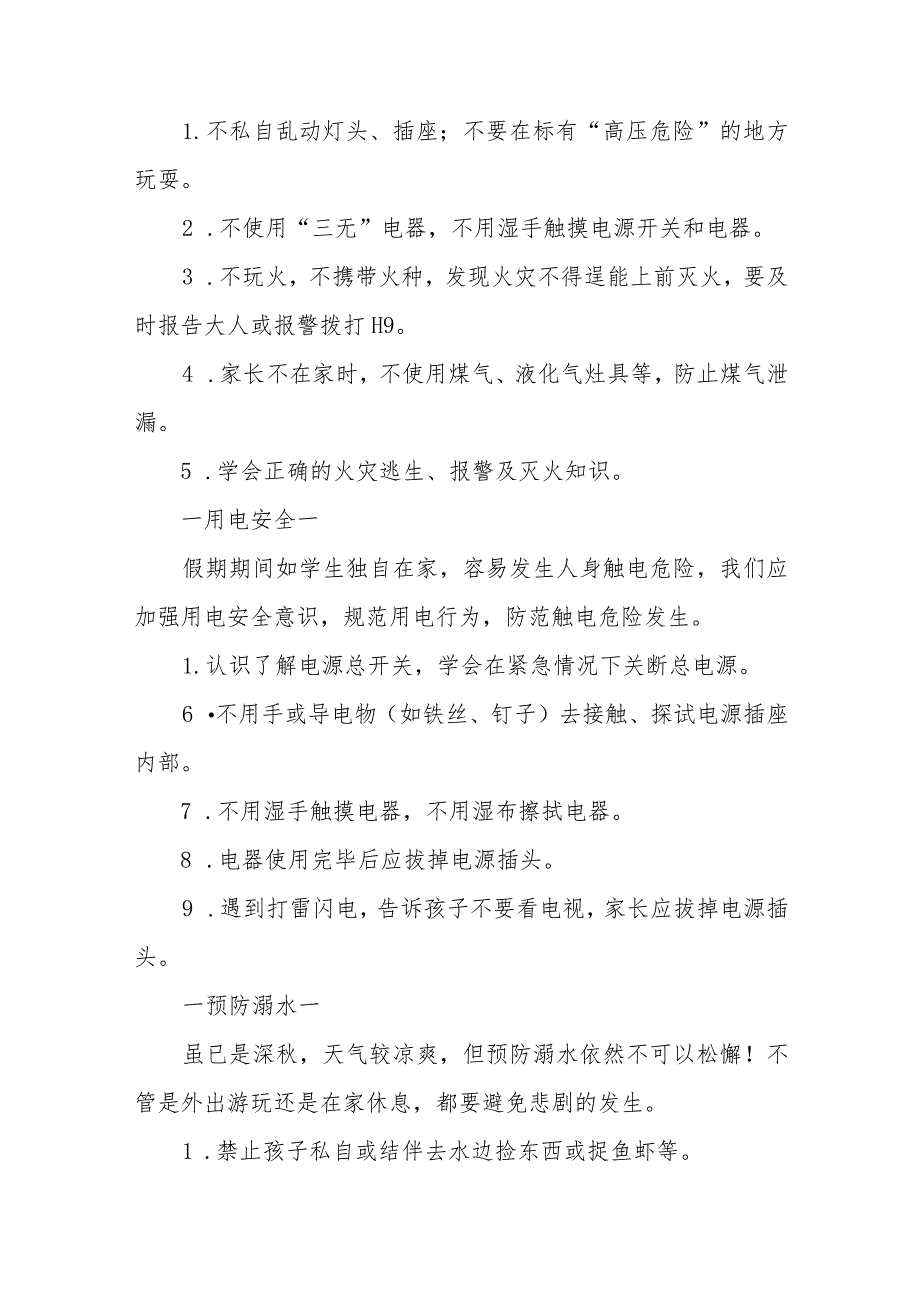 1.不私自乱动灯头、插座；不要在标有“高压危险”的地方
玩耍。
2 .不使用“三无”电器，不用湿手触摸电源开关和电器。
3 .不玩火，不携带火种，发现火灾不得逞能上前灭火，要及
时报告大人或报警拨打H9。
4 .家长不在家时，不使用煤气、液化气灶具等，防止煤气泄
漏。
5 .学会正确的火灾逃生、报警及灭火知识。
一用电安全一
假期期间如学生独自在家，容易发生人身触电危险，我们应
加强用电安全意识，规范用电行为，防范触电危险发生。
1.认识了解电源总开关，学会在紧急情况下关断总电源。
6 •不用手或导电物（如铁丝、钉子）去接触、探试电源插座
内部。
7 .不用湿手触摸电器，不用湿布擦拭电器。
8 .电器使用完毕后应拔掉电源插头。
9 .遇到打雷闪电，告诉孩子不要看电视，家长应拔掉电源插
头。
一预防溺水一
虽已是深秋，天气较凉爽，但预防溺水依然不可以松懈！不
管是外出游玩还是在家休息，都要避免悲剧的发生。
1 .禁止孩子私自或结伴去水边捡东西或捉鱼虾等。